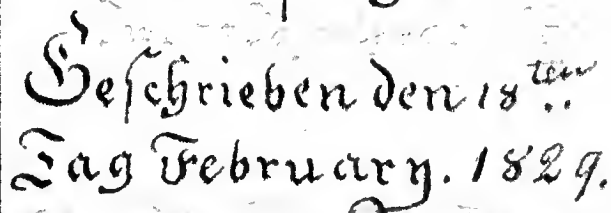 Geschrieben den 18ten
Tag February. 1829.